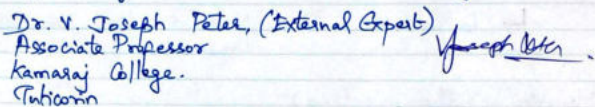 Dr. V. Joseph Peter, (External Expert)
Associate Professor
Kamaraj College.
Tuticorin